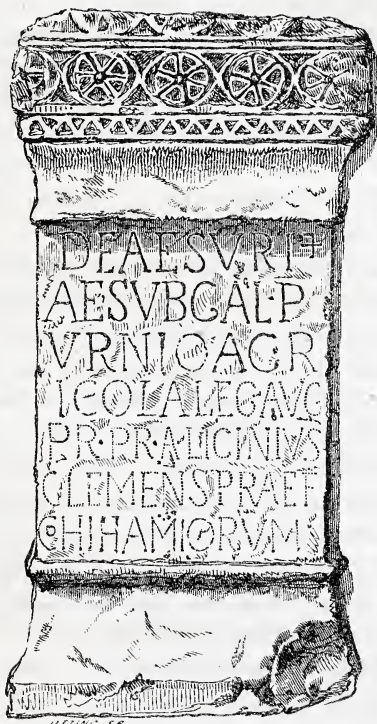 DEAESVRI
AESVBCAL·P
VRNIOAGR
ICOLALEGAVG
PR·PR·A·LICINIVS
CLEMENSPRAEF
COHIHAMIORVM
UTTING SC